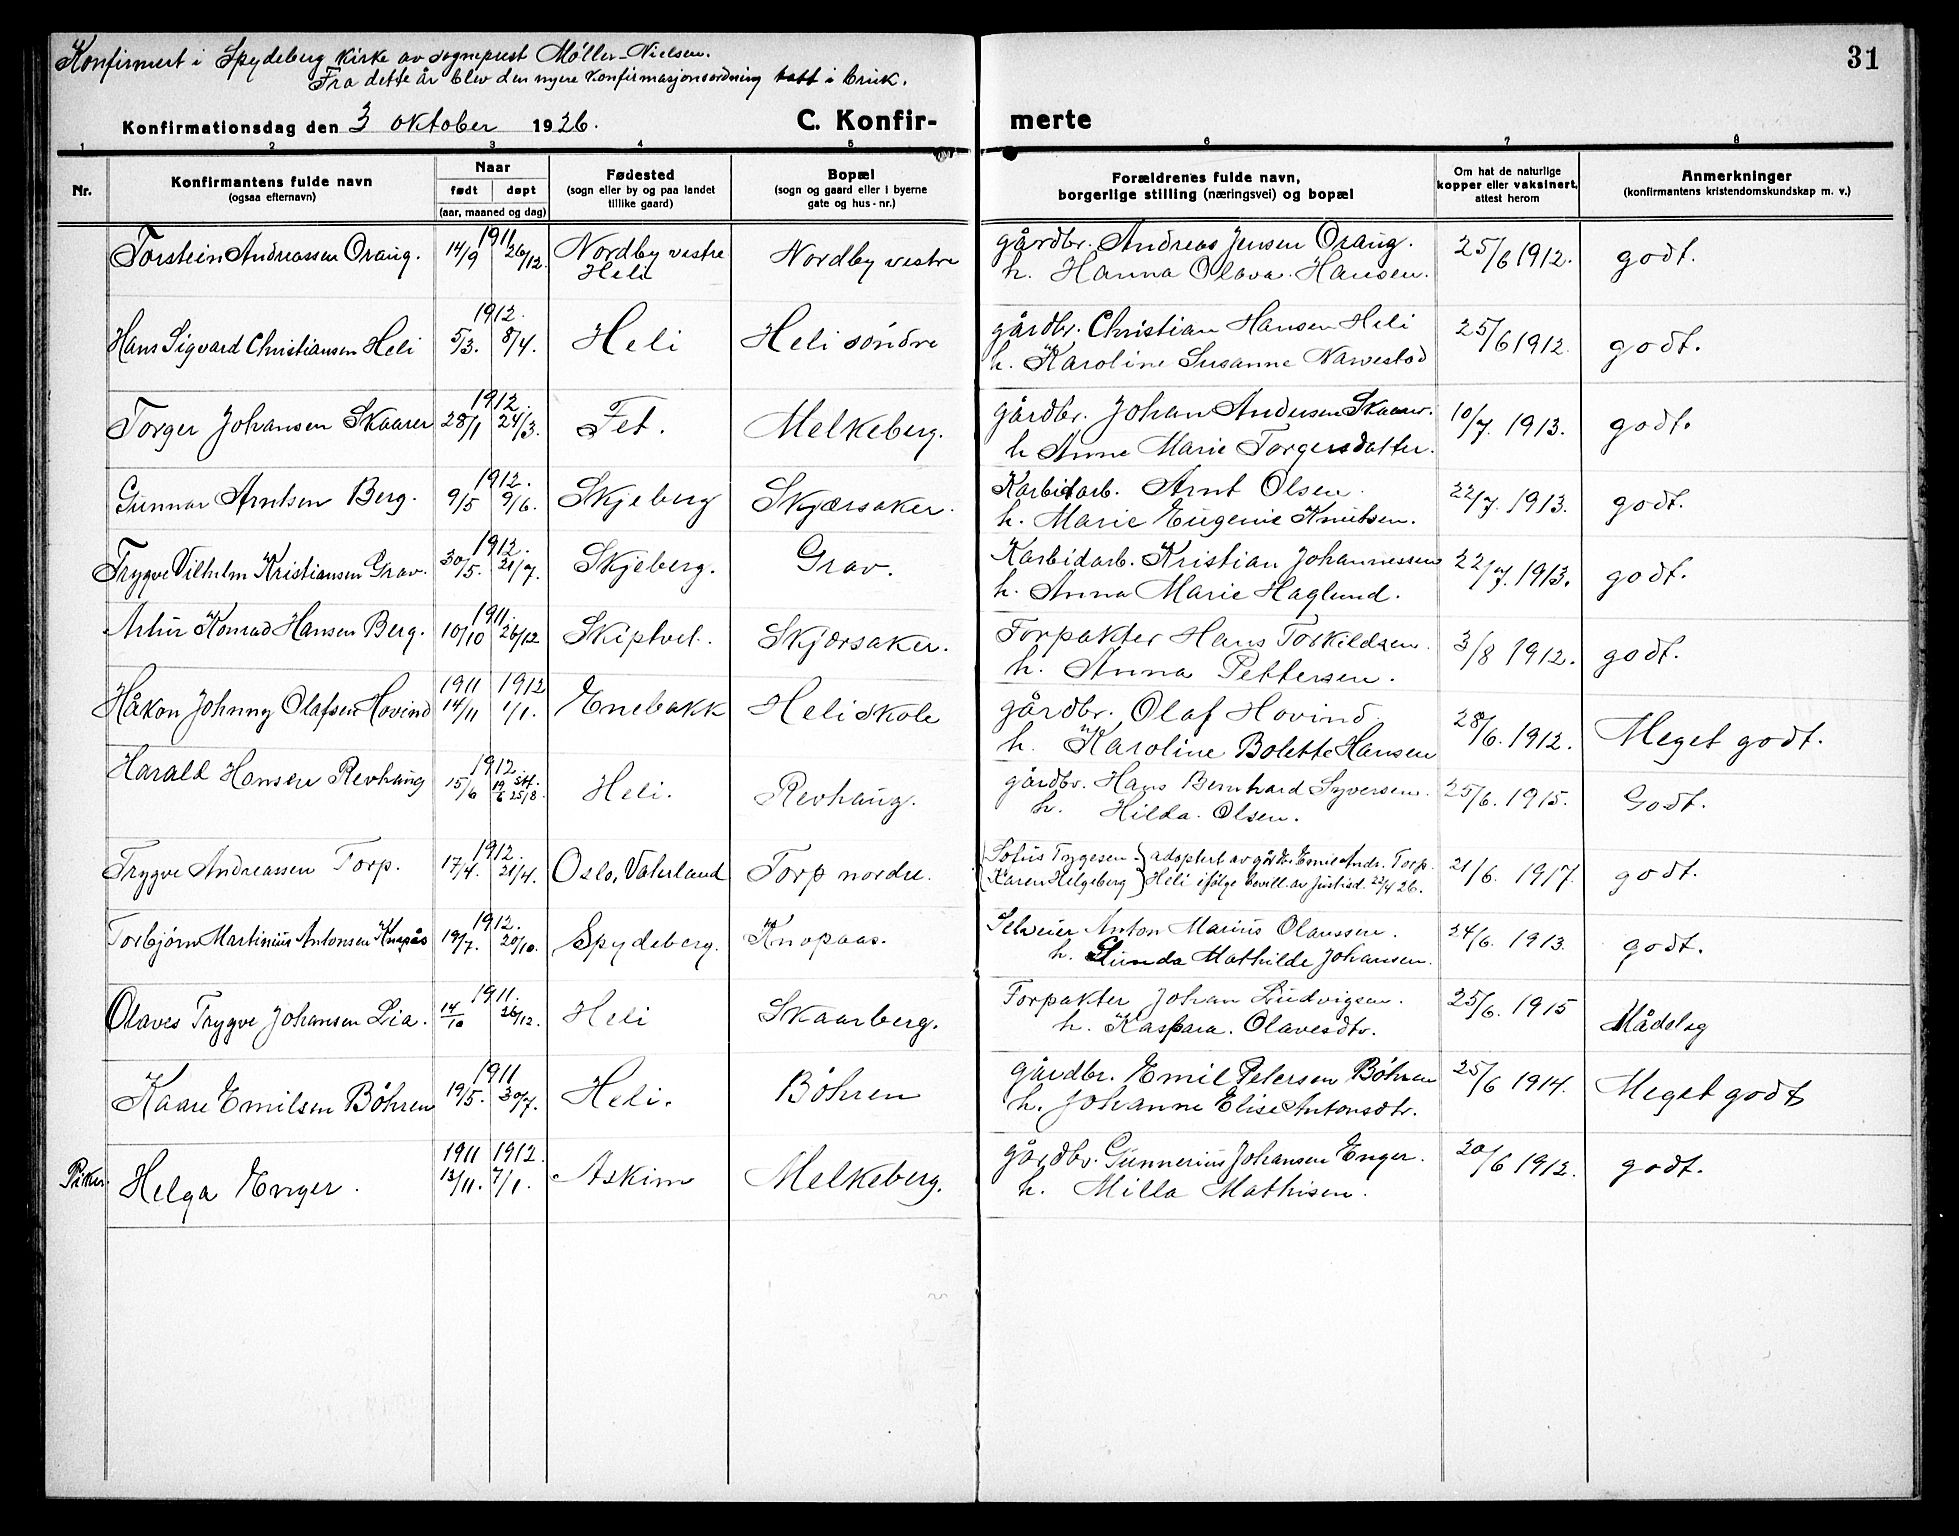 Konfirmert i Spydeberg kirke av sogneprest Møller-Nielsen.
Fra dette år blev den nyere konfirmasjonsordning tatt i bruk.
31
Konfirmationsdag den 3 oktober 1926.
C. Konfir- merte
1 2 3 4 5 6 7 8
Nr.
Konfirmantens fulde navn
(ogsaa efternavn)
Naar
født døpt
(aar, maaned og dag)
Fødested
(sogn eller by og paa landet
tillike gaard)
Bopæl
(sogn og gaard eller i byerne
gate og hus-nr.)
Forældrenes fulde navn,
borgerlige stilling (næringsvei) og bopæl
Om hat de naturlige
kopper eller vaksinert,
attest herom
Anmerkninger
(konfirmantens kristendomskundskap m. v.)
1911
Torstein Andreassen Oraug. 14/9 26/12. Nordby vestre Nordby vestre gårdbr. Andreas Jensen Oraug. 25/6 1912. godt.
Heli h. Hanna Olava Hansen.
1912.
Hans Sigvard Christiansen Heli 5/3. 8/4. Heli Heli søndre gårdbr. Christian Hansen Heli 25/6 1912. godt.
h. Karoline Susanne Navestad
1912.
Torger Johansen Skaarer 28/1 24/3. Fet. Melkeberg. gårdbr. Johan Andersen Skaarer. 10/7. 1913. godt.
h Anne Marie Torgersdatter.
1912.
Gunnar Arntsen Berg. 9/5 9/6. Skjeberg Skjærsaker. Karbidarb. Arnt Olsen. 22/7. 1913. godt.
h. Marie Eugenie Knutsen.
1912.
Trygve Vilhelm Kristiansen Grav. 30/5. 21/7. Skjeberg. Grav. Karbidarb. Kristian Johannessen 22/7. 1913. godt.
h. Anna Marie Haglund.
1911.
Artur Konrad Hansen Berg. 10/10 26/12 Skiptvet. Skjærsaker. Forpakter Hans Torkildsen. 3/8 1912. godt.
h. Anna Pettersen.
1911 1912
Håkon Johnny Olafsen Hovind 14/11 1/1. Enebakk Heli skole gårdbr. Olaf Hovind 28/6. 1912. Meget godt.
h. Karoline Bolette Hansen
1912.
Harald Hansen Revhaug 15/6 19/6 stf. 25/8. Heli. Revhaug. gårdbr. Hans Bernhard Syversen. 25/6. 1915. Godt.
h. Hilda Olsen.
1912.
Trygve Andreassen Torp. 17/4. 21/4. Oslo, Vaterland Torp nordre. adoptert av gårdbr. Emil Andr. Torp. 21/6. 1917. godt.
Karen Helgeberg Heli ifølge bevill. av Justisd. 22/4 26.
1912.
Torbjørn Martinius Antonsen Knapås 19/7. 20/10. Spydeberg. Knopaas. Selveier Anton Marius Olaussen. 24/6. 1913. godt.
h. Gunda Mathilde Johansen.
1911.
Olaves Trygve Johansen Lia. 14/10 26/12. Heli Skaarberg. Forpakter Johan Ludvigsen. 25/6. 1915 Mådelig
h. Kaspara Olavesdtr.
1911
Kaare Emilsen Bøhren 19/5. 30/7. Heli. Bøhren gårdbr. Emil Petersen Bøhren 25/6 1914. Meget godt
h. Johanne Elise Antonsdtr.
1911 1912.
Piker. Helga Enger. 13/11. 7/1. Askim Melkeberg. gårdbr. Gunnerius Johansen Enger. 20/6 1912. godt.
h. Milla Mathisen.